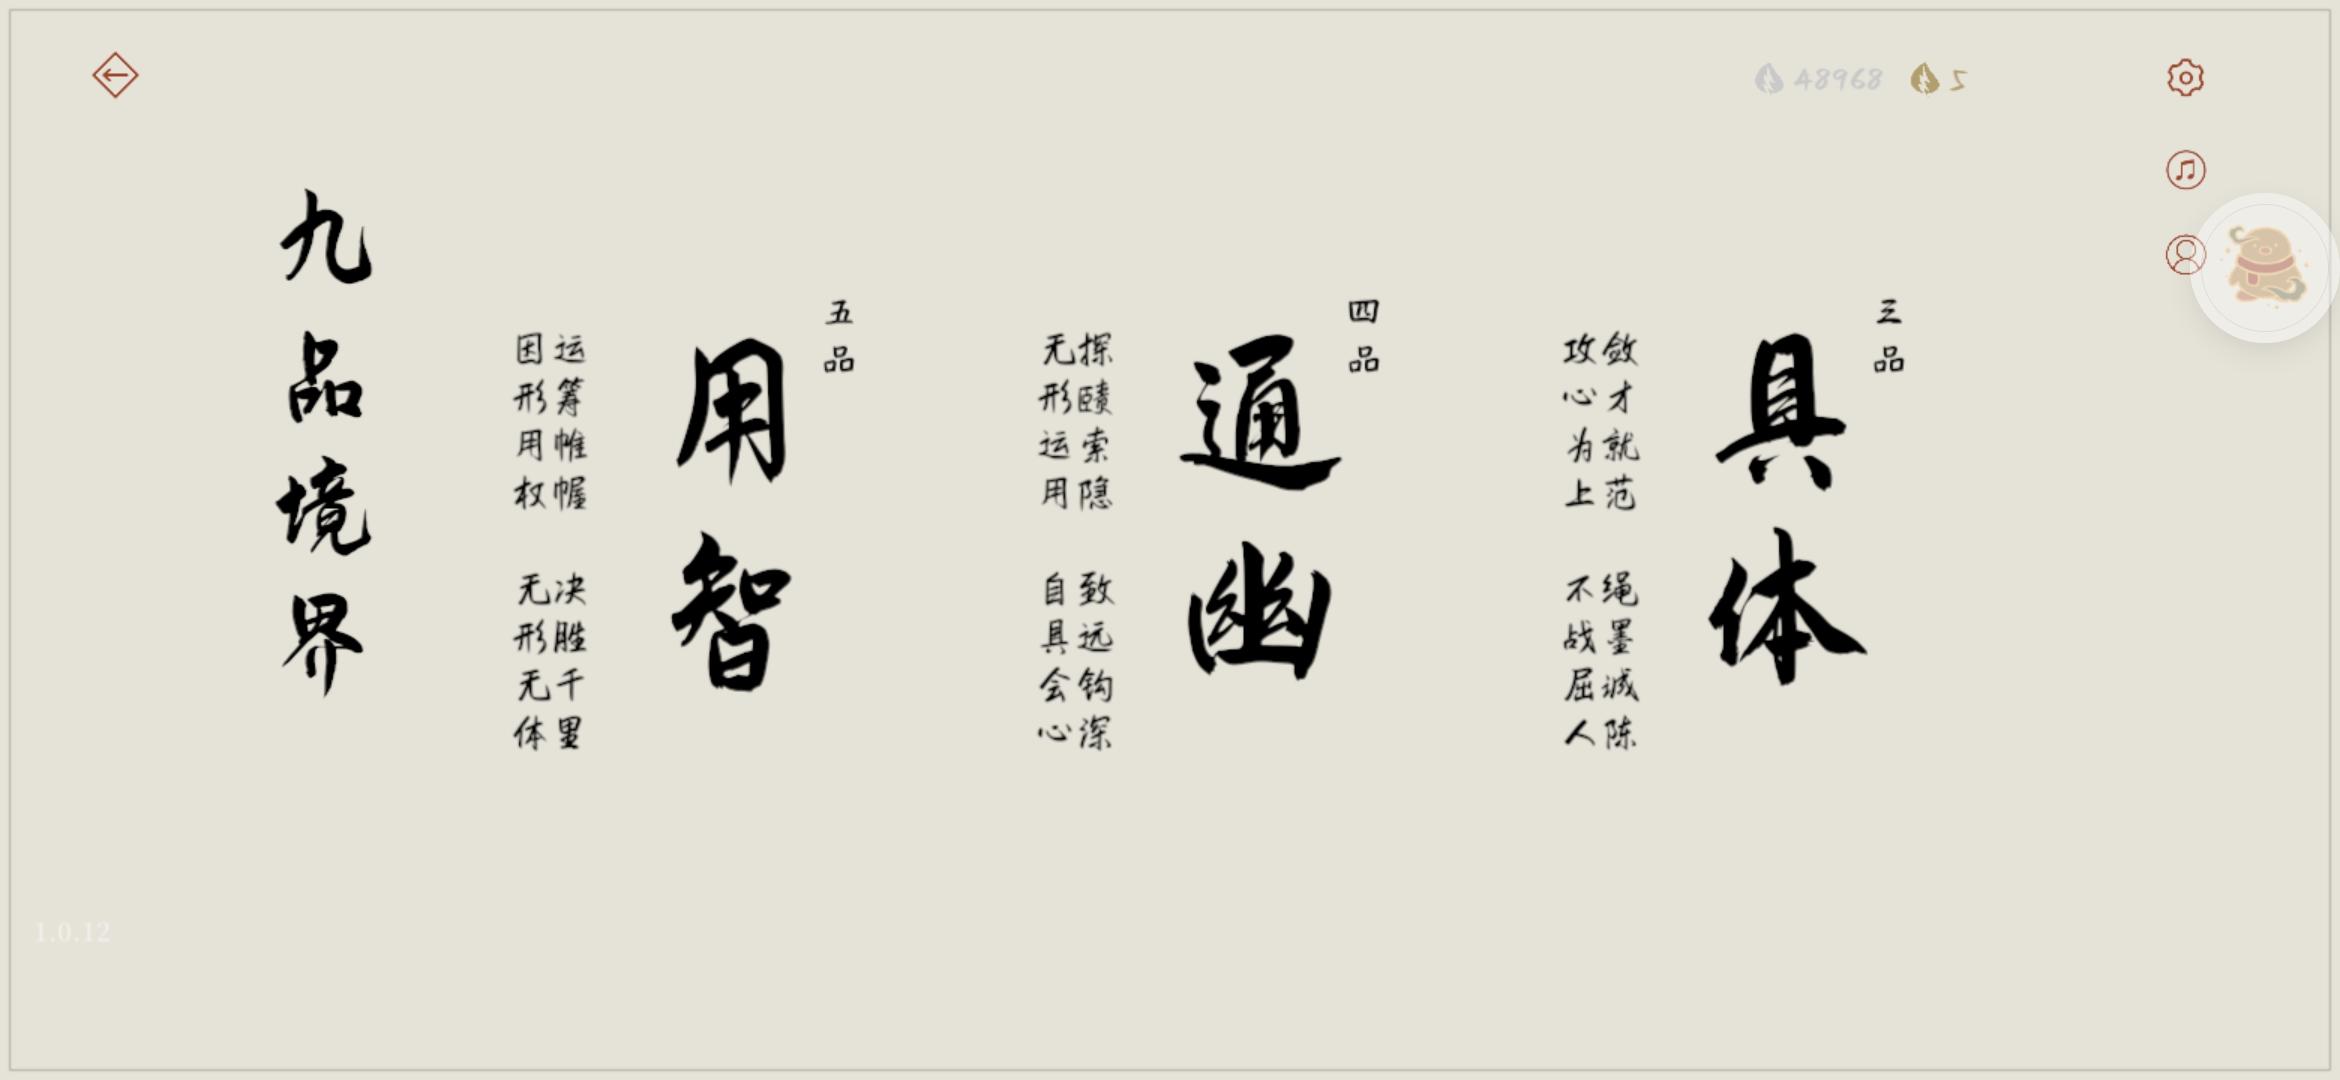 48968
5
三品
具体
敛才就范 绳墨诚陈
攻心为上 不战屈人
四品
通幽
探赜索隐 致远钩深
无形运用 自具会心
五品
用智
运筹帷幄 决胜千里
因形用权 无形无体
九品境界
1.0.12